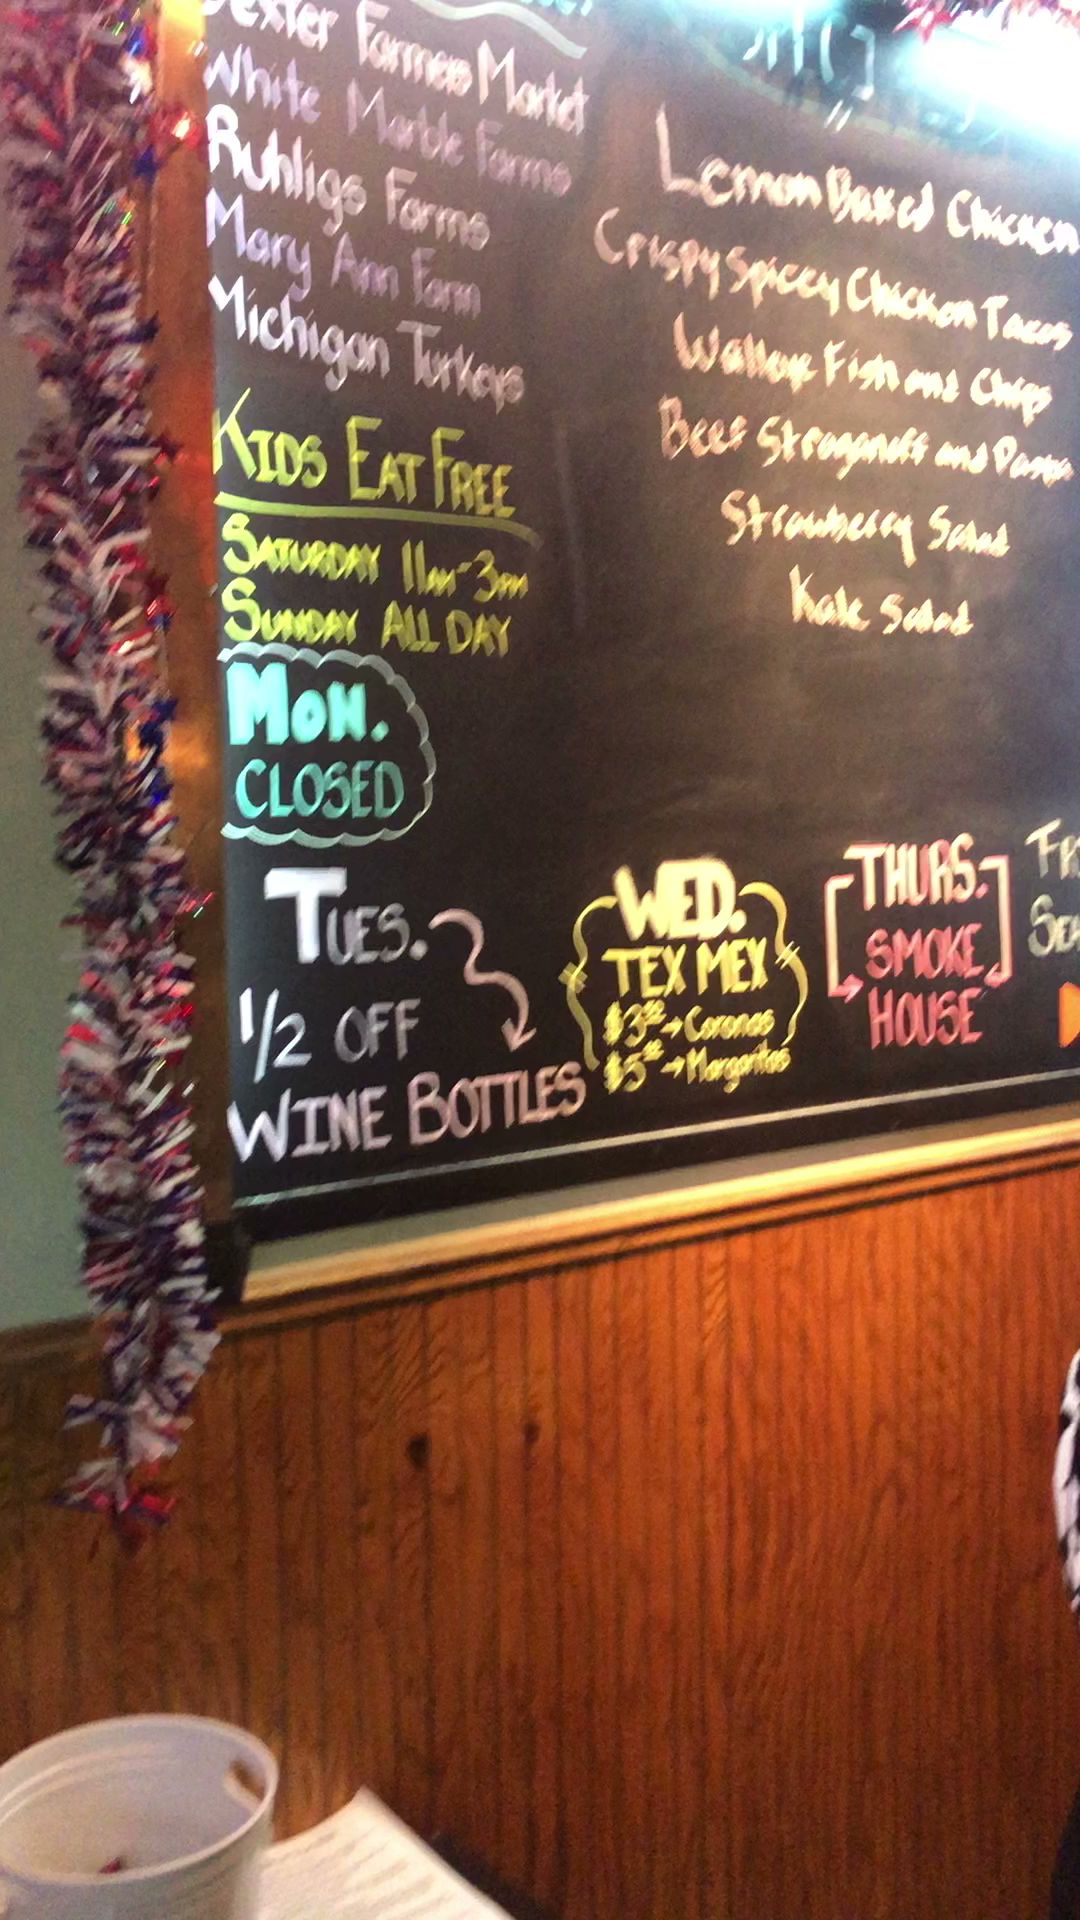 Dexter Farmers Market
White Marble Farms
Ruhligs Farms
Mary Ann Farm
Michigan Turkeys
KIDS EAT FREE
SATURDAY 11am-3pm
SUNDAY ALL DAY
MON.
CLOSED
TUES.
1/2 OFF
WINE BOTTLES
Lemon Baked Chicken
Crispy Spiccy Chicken Tacos
Walleye Fish and Chips
Beef Stroganoff and Pasta
Strawberry Salad
Kale Salad
WED.
TEX MEX
$3.00→Coronas
$5.00→Margaritas
THURS.
SMOKE
HOUSE